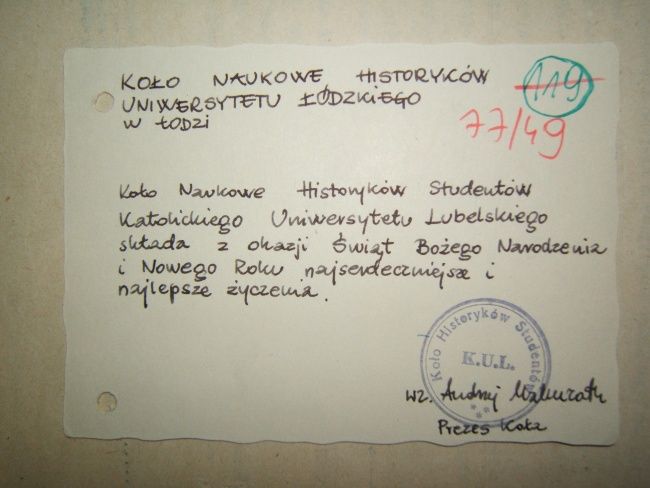 KOŁO NAUKOWE HISTORYKÓW
UNIWERSYTETU ŁÓDZKIEGO
W ŁODZI
119
77/49
Koło Naukowe Historyków Studentów
Katolickiego Uniwersytetu Lubelskiego
składa z okazji Świąt Bożego Narodzenia
i Nowego Roku najserdeczniejsze i
najlepsze życzenia.
Koło Historyków Studentów
K.U.L.
wz. Andrzej
Prezes Koła